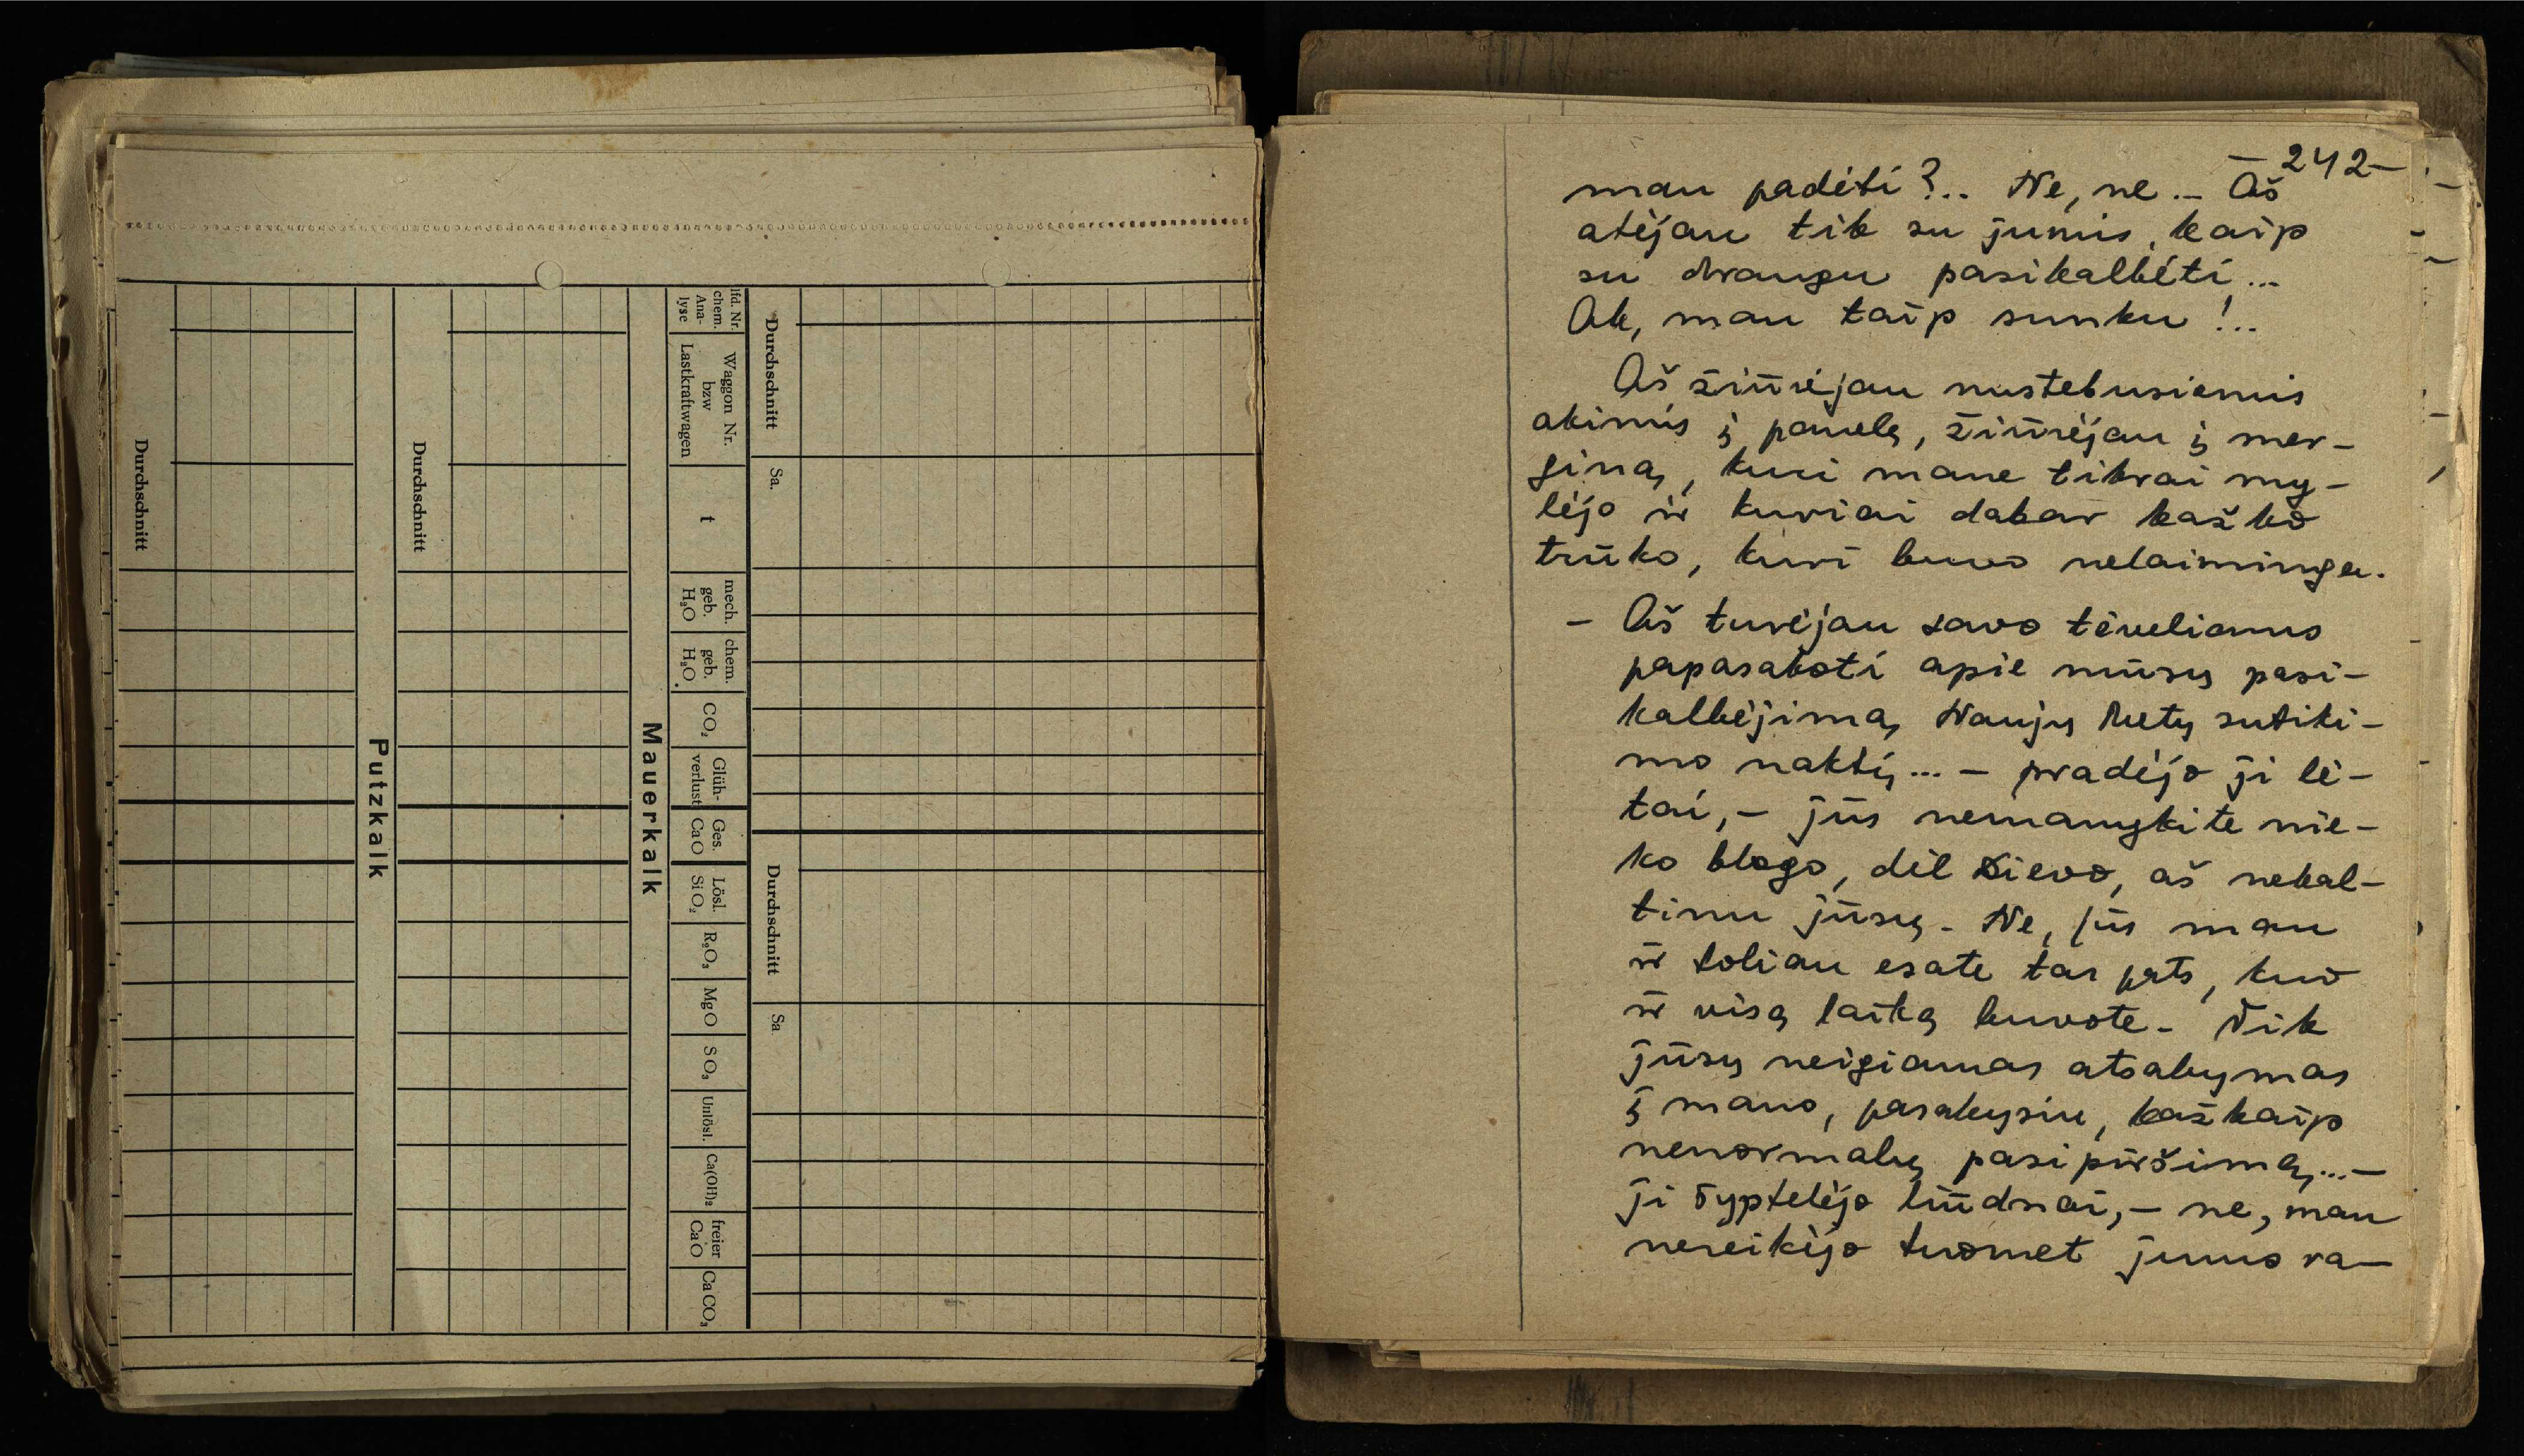 Durchschnitt
Putzkalk
Durchschnitt
Mauerkalk
lfd. Nr.
chem.
Ana-
lyse
Waggon Nr.
bzw
Lastkraftwagen
t
mech.
geb.
H₂O
chem.
geb.
H₂O
CO₂
Glüh-
verlust
Ges.
CaO
Lösl.
SiO₂
R₂O₃
MgO
SO₃
Unlösl.
Ca(OH)₂
freier
CaO
CaCO₃
Durchschnitt
Sa.
Durchschnitt
Sa
-242-
man padėti?.. Ne, ne.- Aš
atėjau tik su jumis, kaip
su draugu pasikalbėti...
Ak, man taip sunku!..
Aš žiūrėjau nustebusiomis
akimis į panelę, žiūrėjau į mer-
giną, kuri mane tikrai my-
lėjo ir kuriai dabar kažko
trūko, kuri buvo nelaiminga.
- Aš turėjau savo tėveliams
papasakoti apie mūsų pasi-
kalbėjimą Naujų Metų sutiki-
mo naktį...- pradėjo ji lė-
tai,- jūs nemanykite nie-
ko blogo, dėl Dievo, aš nekal-
tinu jūsų. Ne, jūs man
ir toliau esate tas pats, kuo
ir visą laiką buvote. Tik
jūsų neigiamas atsakymas
į mano, pasakysiu, kažkaip
nenormalų pasipiršimą...-
ji šyptelėjo liūdnai,- ne, man
nereikėjo tuomet jums ra-